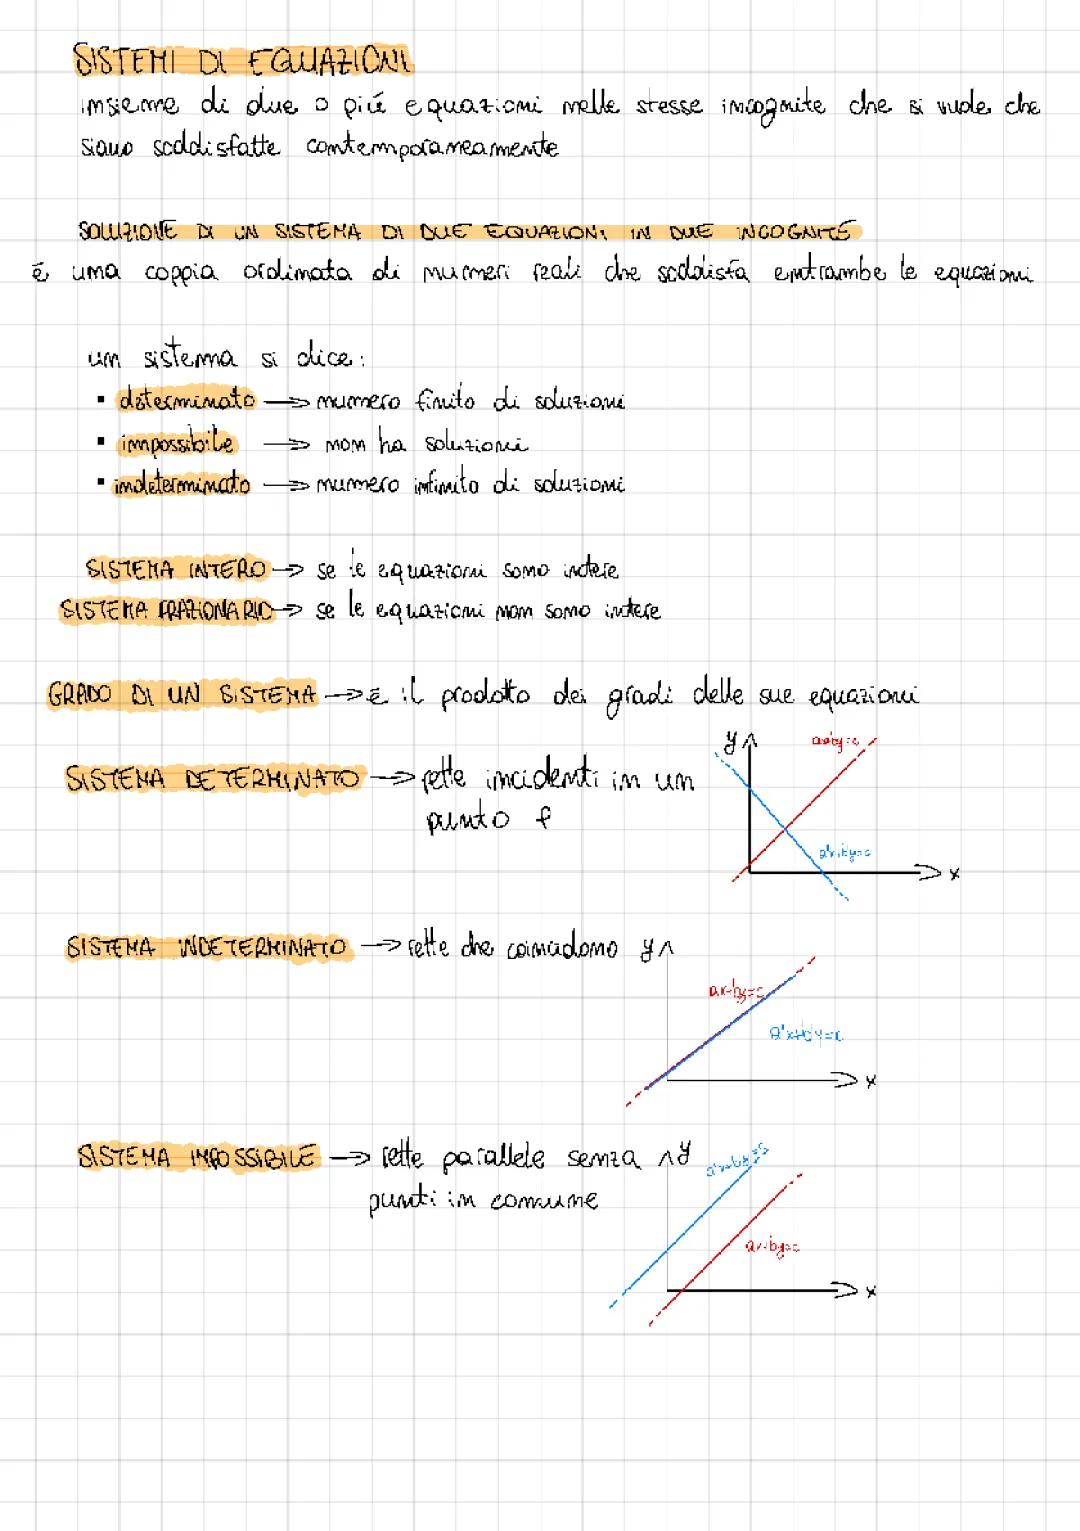 SISTEMI DI EQUAZIONI
insieme di due o piú equazioni nelle stesse incognite che si vuole che
siano soddisfatte contemporaneamente
SOLUZIONE DI UN SISTEMA DI DUE EQUAZIONI IN DUE INCOGNITE
é una coppia ordinata di numeri reali che soddisfa entrambe le equazioni
un sistema si dice:
▪ determinato → numero finito di soluzioni
▪ impossibile → non ha soluzioni
▪ indeterminato → numero infinito di soluzioni
SISTEMA INTERO → se le equazioni sono intere
SISTEMA FRAZIONARIO → se le equazioni non sono intere
GRADO DI UN SISTEMA → é il prodotto dei gradi delle sue equazioni
SISTEMA DETERMINATO → rette incidenti in un
punto P
y
ax+by=c
a'x+b'y=c
x
SISTEMA INDETERMINATO → rette che coincidono
y
ax+by=c
a'x+b'y=c
x
SISTEMA IMPOSSIBILE → rette parallele senza
punti in comune
y
ax+by=c
x